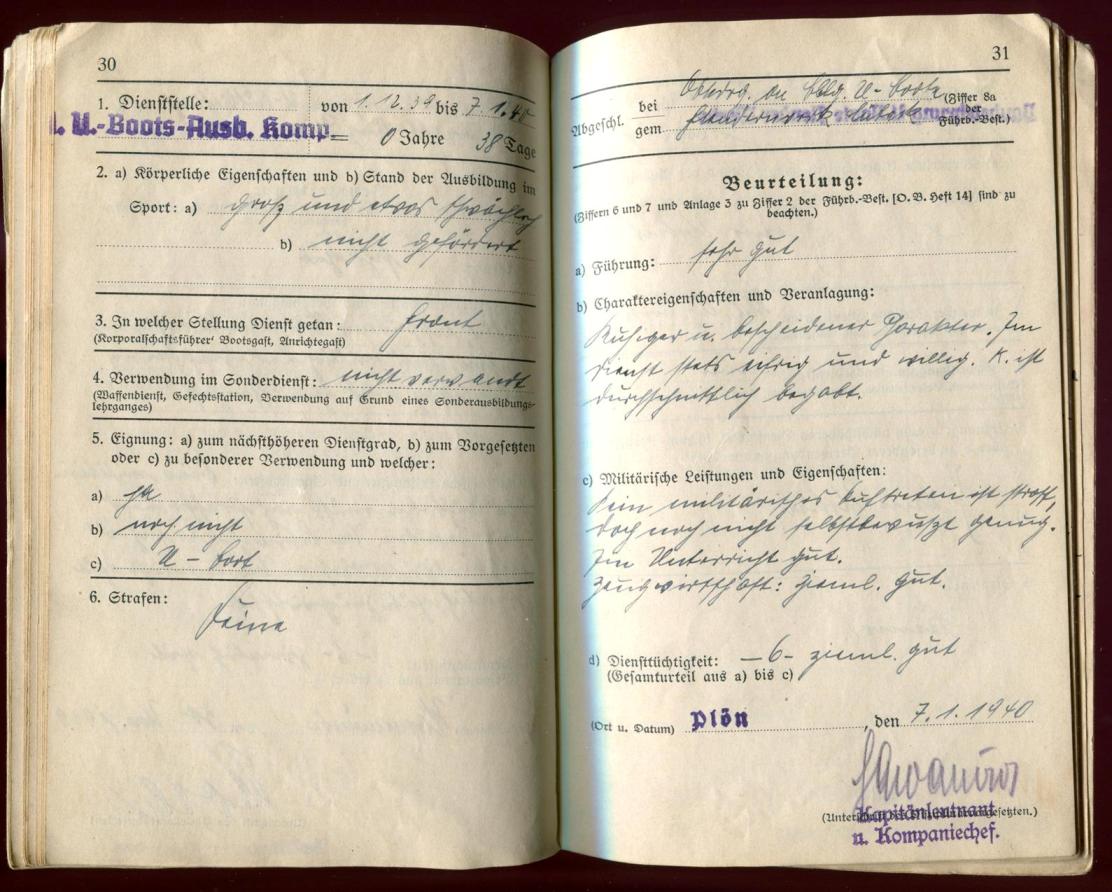 30
1. Dienststelle: von 1.12.39 bis 7.1.40
U.-Boots-Ausb. Komp. 0 Jahre 38 Tage
2. a) Körperliche Eigenschaften und b) Stand der Ausbildung im
Sport: a) groß und etwas schwächlich
b) nicht gefördert
3. In welcher Stellung Dienst getan: Front
(Korporalschaftsführer, Bootsgast, Anrichtegast)
4. Verwendung im Sonderdienst: nicht verwandt
(Waffendienst, Gefechtsstation, Verwendung auf Grund eines Sonderausbildungs-
lehrganges)
5. Eignung: a) zum nächsthöheren Dienstgrad, b) zum Vorgesetzten
oder c) zu besonderer Verwendung und welcher:
a) ja
b) noch nicht
c) U-Boot
6. Strafen:
Keine
31
Abgeschl. bei U-Boote (Ziffer 8a
gem der
Führb.-Best.)
Beurteilung:
(Ziffern 6 und 7 und Anlage 3 zu Ziffer 2 der Führb.-Best. [O. B. Heft 14] sind zu
beachten.)
a) Führung: sehr gut
b) Charaktereigenschaften und Veranlagung:
Ruhiger u. bescheidener Charakter. Im
Dienst stets eifrig und willig. K. ist
durchschnittlich begabt.
c) Militärische Leistungen und Eigenschaften:
Sein militärisches Auftreten ist straff,
doch noch nicht selbstbewußt genug.
Im Unterricht gut.
Zeugwirtschaft: zieml. gut.
d) Diensttüchtigkeit: -6- zieml. gut
(Gesamturteil aus a) bis c)
(Ort u. Datum) Plön, den 7.1.1940
Kapitänleutnant
u. Kompaniechef.